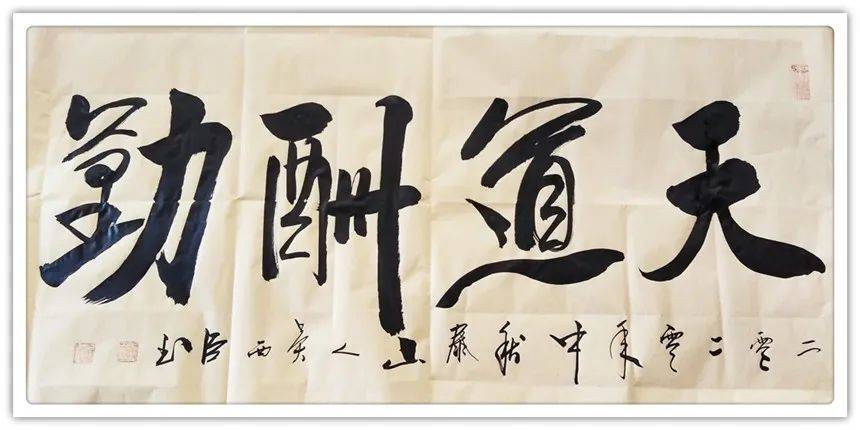 天道酬勤
二零二零年中秋泰山人黄西臣书